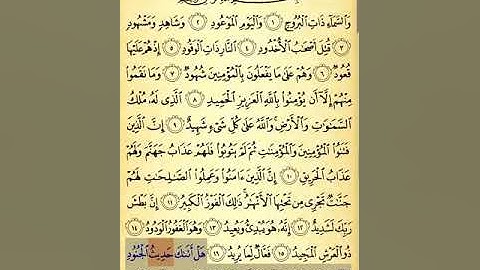 وَالسَّمَاءِ ذَاتِ الْبُرُوجِ ١ وَالْيَوْمِ الْمَوْعُودِ ٢ وَشَاهِدٍ وَمَشْهُودٍ
٣ قُتِلَ أَصْحَابُ الْأُخْدُودِ ٤ النَّارِ ذَاتِ الْوَقُودِ ٥ إِذْ هُمْ عَلَيْهَا
قُعُودٌ ٦ وَهُمْ عَلَىٰ مَا يَفْعَلُونَ بِالْمُؤْمِنِينَ شُهُودٌ ٧ وَمَا نَقَمُوا
مِنْهُمْ إِلَّا أَن يُؤْمِنُوا بِاللَّهِ الْعَزِيزِ الْحَمِيدِ ٨ الَّذِي لَهُ مُلْكُ
السَّمَاوَاتِ وَالْأَرْضِ وَاللَّهُ عَلَىٰ كُلِّ شَيْءٍ شَهِيدٌ ٩ إِنَّ الَّذِينَ
فَتَنُوا الْمُؤْمِنِينَ وَالْمُؤْمِنَاتِ ثُمَّ لَمْ يَتُوبُوا فَلَهُمْ عَذَابُ جَهَنَّمَ وَلَهُمْ
عَذَابُ الْحَرِيقِ ١٠ إِنَّ الَّذِينَ آمَنُوا وَعَمِلُوا الصَّالِحَاتِ لَهُمْ
جَنَّاتٌ تَجْرِي مِن تَحْتِهَا الْأَنْهَارُ ذَٰلِكَ الْفَوْزُ الْكَبِيرُ ١١ إِنَّ بَطْشَ
رَبِّكَ لَشَدِيدٌ ١٢ إِنَّهُ هُوَ يُبْدِئُ وَيُعِيدُ ١٣ وَهُوَ الْغَفُورُ الْوَدُودُ ١٤
ذُو الْعَرْشِ الْمَجِيدُ ١٥ فَعَّالٌ لِّمَا يُرِيدُ ١٦ هَلْ أَتَاكَ حَدِيثُ الْجُنُودِ